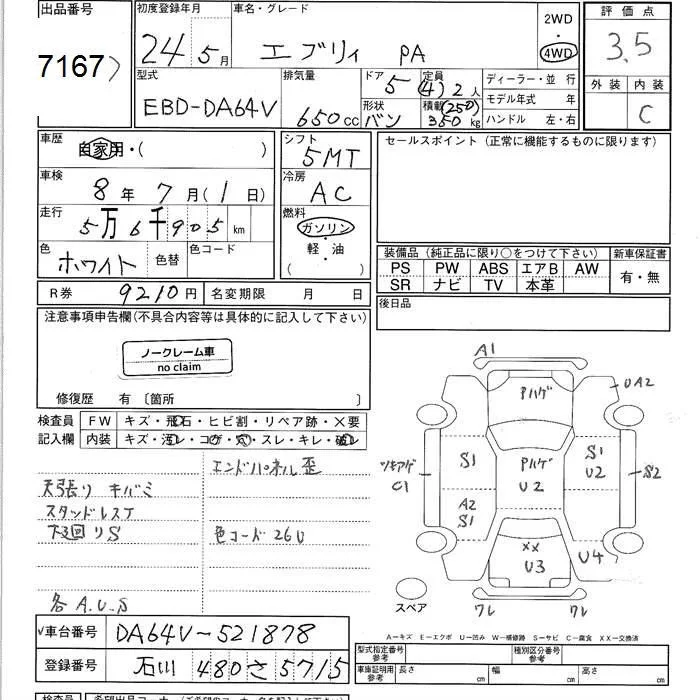 出品番号
7167
初度登録年月
24年5月
車名・グレード
エブリィ PA
2WD
・
4WD
評価点
3.5
外装 内装
C
型式
EBD-DA64V
排気量
650cc
ドア
5
定員
(4) 2人
形状
バン
積載 (250)
350 kg
ディーラー・並 行
モデル年式 年
ハンドル 左・右
車歴
自家用・( )
シフト
5MT
セールスポイント (正規に機能するものに限ります)
車検
8年7月(1日)
冷房
AC
走行
5万6千905km
燃料
ガソリン
・
軽・油
( )
色
ホワイト
色替
色コード
装備品 (純正品に限り○をつけて下さい)
新車保証書
PS PW ABS エアB AW
SR ナビ TV 本革
有・無
R券 9210円
名変期限 月 日
後日品
注意事項申告欄(不具合内容等は具体的に記入して下さい)
ノークレーム車
no claim
修復歴 有 〔箇所 〕
検査員
記入欄
FW キズ・飛石・ヒビ割・リペア跡・X要
内装 キズ・汚レ・コゲ・穴・スレ・キレ・破レ
エンドパネル歪
天張り キバミ
スタンドレスT
下廻りS
色コード26U
各A.U.S
A1
Pハゲ
UA2
ツキアゲ
C1
S1
Pハゲ
U2
S1
U2
S2
A2
S1
XX
U3
U4
スペア
ワレ
ワレ
A-キズ E-エクボ U-凹み W-補修跡 S-サビ C-腐食 XX-交換済
✓車台番号 DA64V-521878
登録番号 石川 480 さ 5715
型式指定番号
参考
種別区分番号
参考
車庫証明用
参考
長さ cm
幅 cm
高さ cm